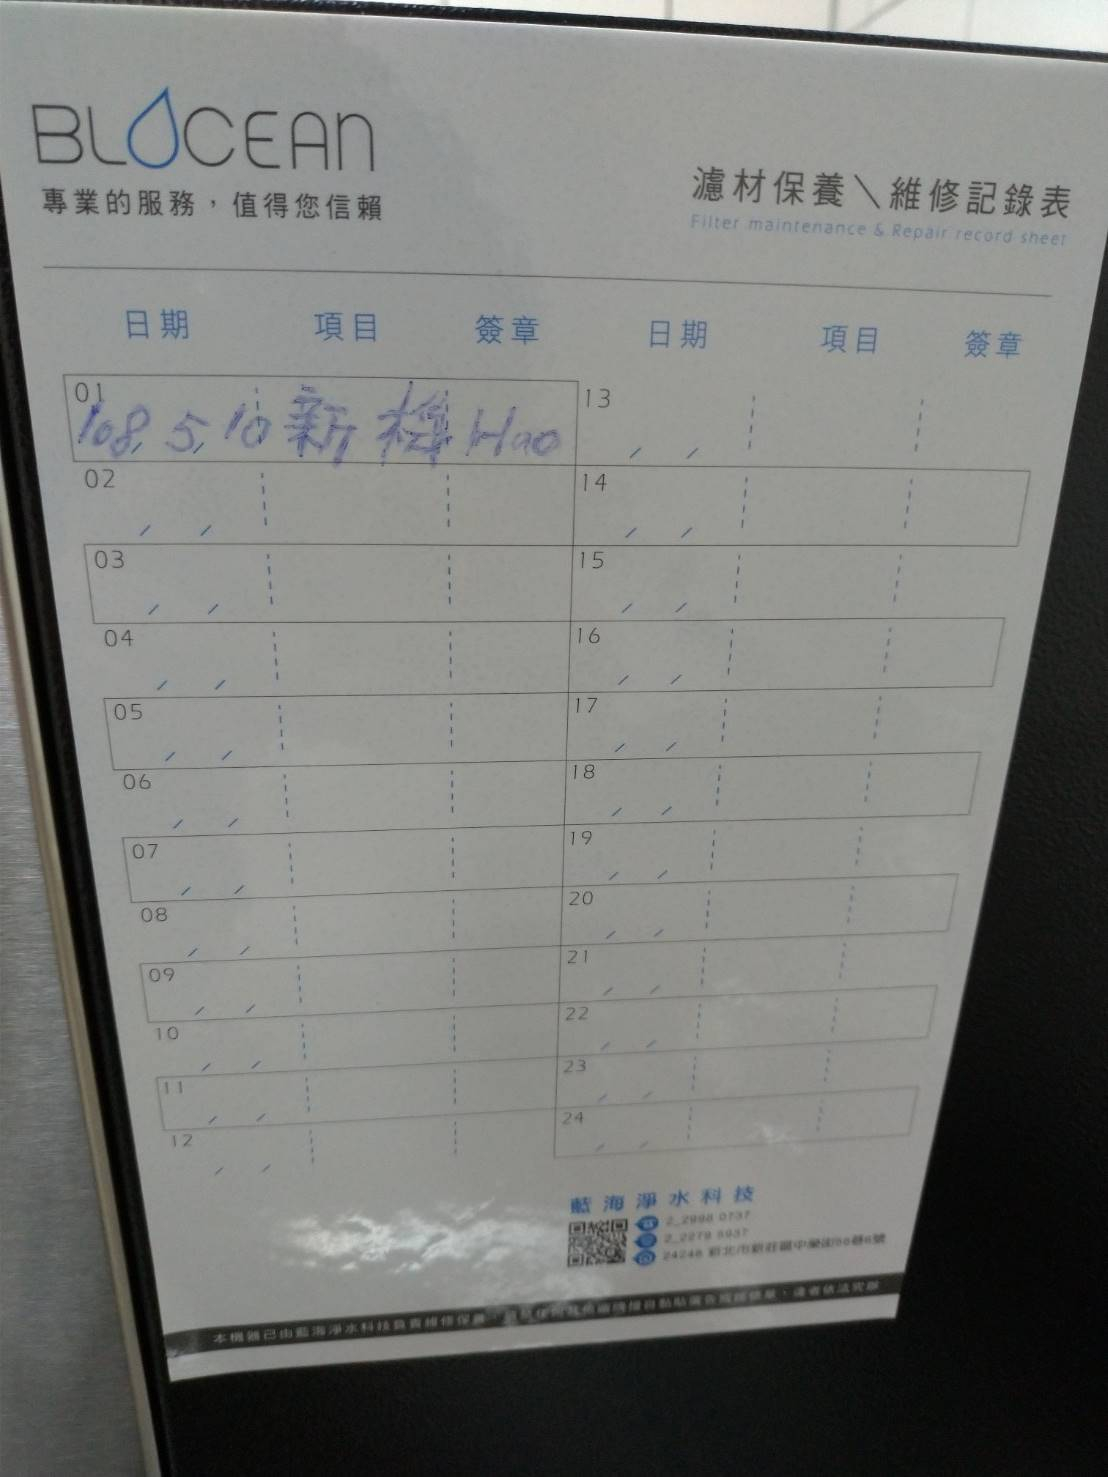 BLOCEAN
專業的服務，值得您信賴
濾材保養＼維修記錄表
Filter maintenance & Repair record sheet
日期 項目 簽章 日期 項目 簽章
01 108, 5, 10 新機 Hao 13
02 14
03 15
04 16
05 17
06 18
07 19
08 20
09 21
10 22
11 23
12 24
藍海淨水科技
2_2998 0737
2_2279 5937
24248 新北市新莊區中榮街
本機器已由藍海淨水科技負責維修保養，
違者依法究辦